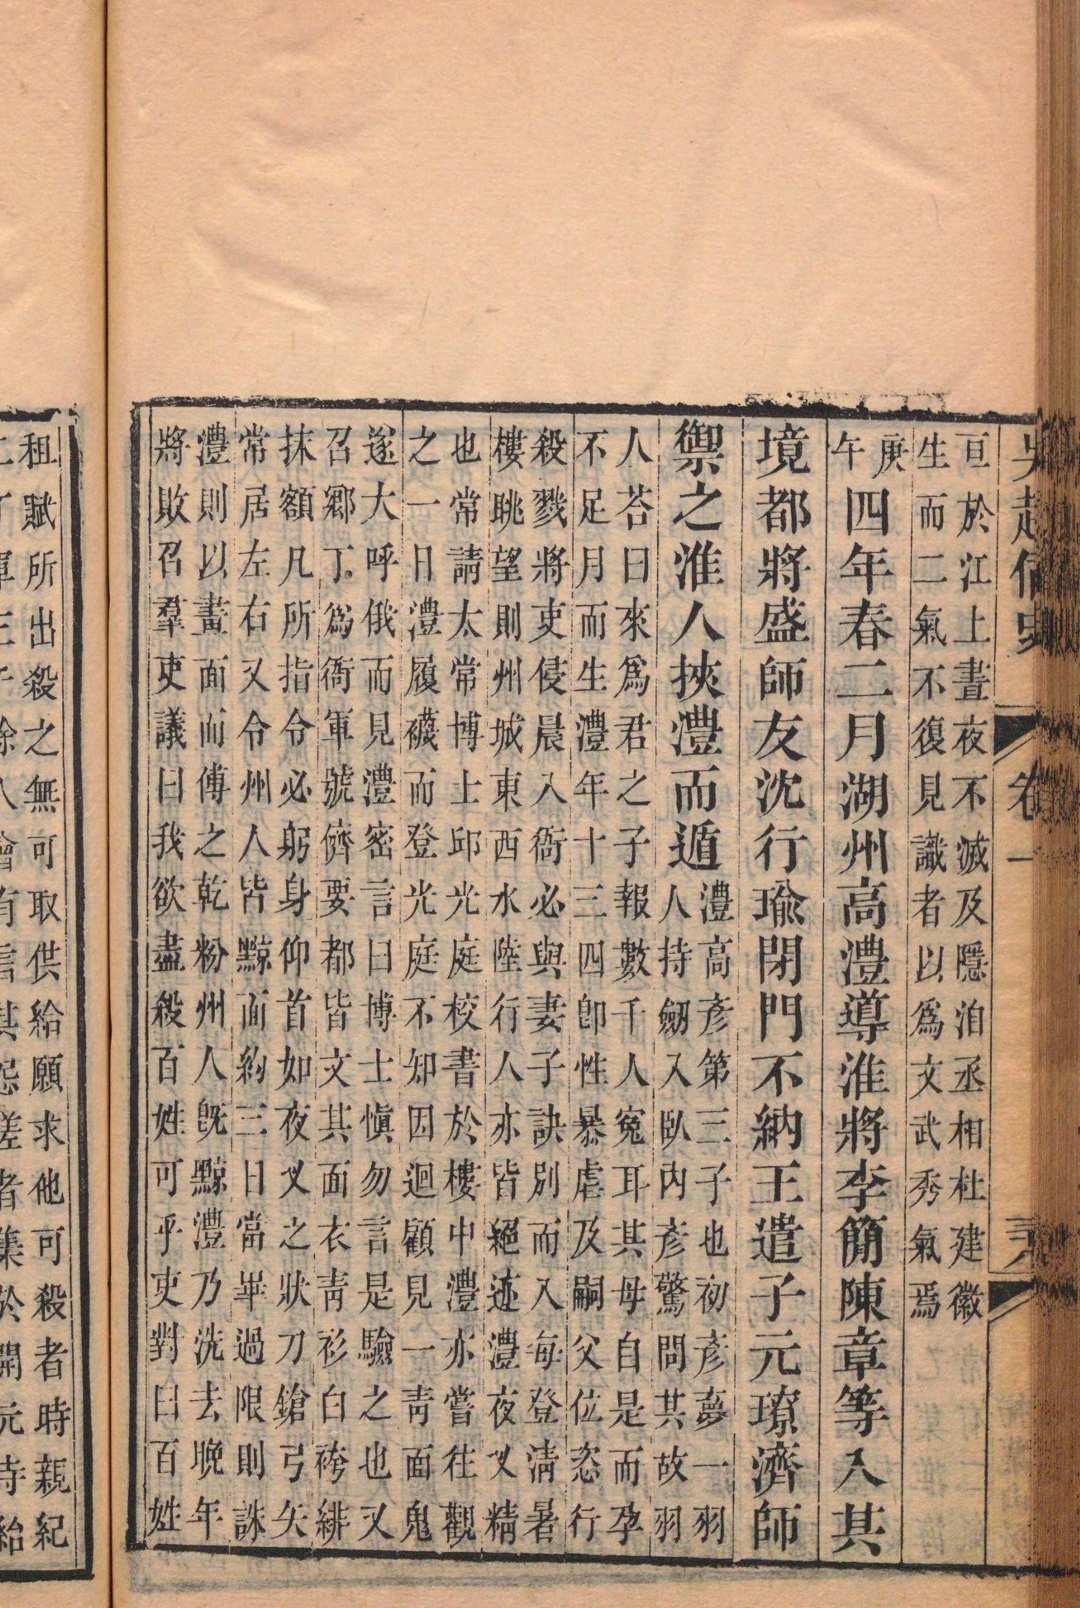 吳越備史 卷一
亘於江上晝夜不滅及隱洎丞相杜建徽
生而二氣不復見識者以爲文武秀氣焉
庚午四年春二月湖州高澧導淮將李簡陳章等入其
境都將盛師友沈行瑜閉門不納王遣子元璙濟師
禦之淮人挾澧而遁
澧高彥第三子也初彥夢一羽
人持劒入臥內彥驚問其故羽
人荅曰來爲君之子報數千人寃耳其母自是而孕
不足月而生澧年十三四卽性暴虐及嗣父位恣行
殺戮將吏侵晨入衙必與妻子訣別而入每登淸暑
樓眺望則州城東西水陸行人亦皆絕迹澧夜叉精
也常請太常博士邱光庭校書於樓中澧亦嘗往觀
之一日澧履襪而登光庭不知因迴顧見一靑面鬼
遂大呼俄而見澧密言曰博士愼勿言是驗之也又
召鄉丁爲衙軍號儕要都皆文其面衣靑衫白袴緋
抹額凡所指令必躬身仰首如夜叉之狀刀鎗弓矢
常居左右又令州人皆黥面約三日當畢過限則誅
澧則以畫面而傅之乾粉州人旣黥澧乃洗去晚年
將敗召羣吏議曰我欲盡殺百姓可乎吏對曰百姓
租賦所出殺之無可取供給願求他可殺者時親紀
二丁軍三千餘人會有言其怨嗟者集於開元寺紿